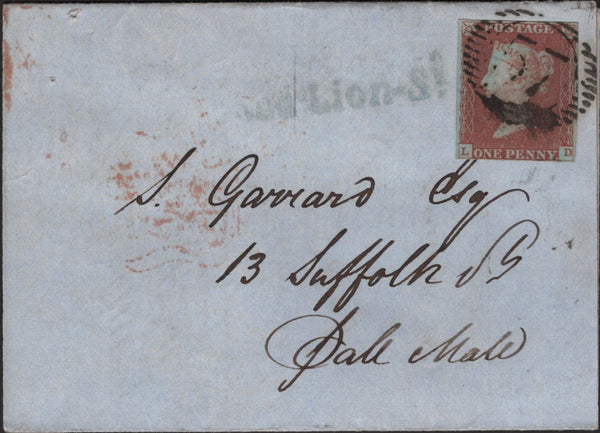 POSTAGE
Lion-St
L D
ONE PENNY
S. Garrard Esq
13 Suffolk St
Pall Mall